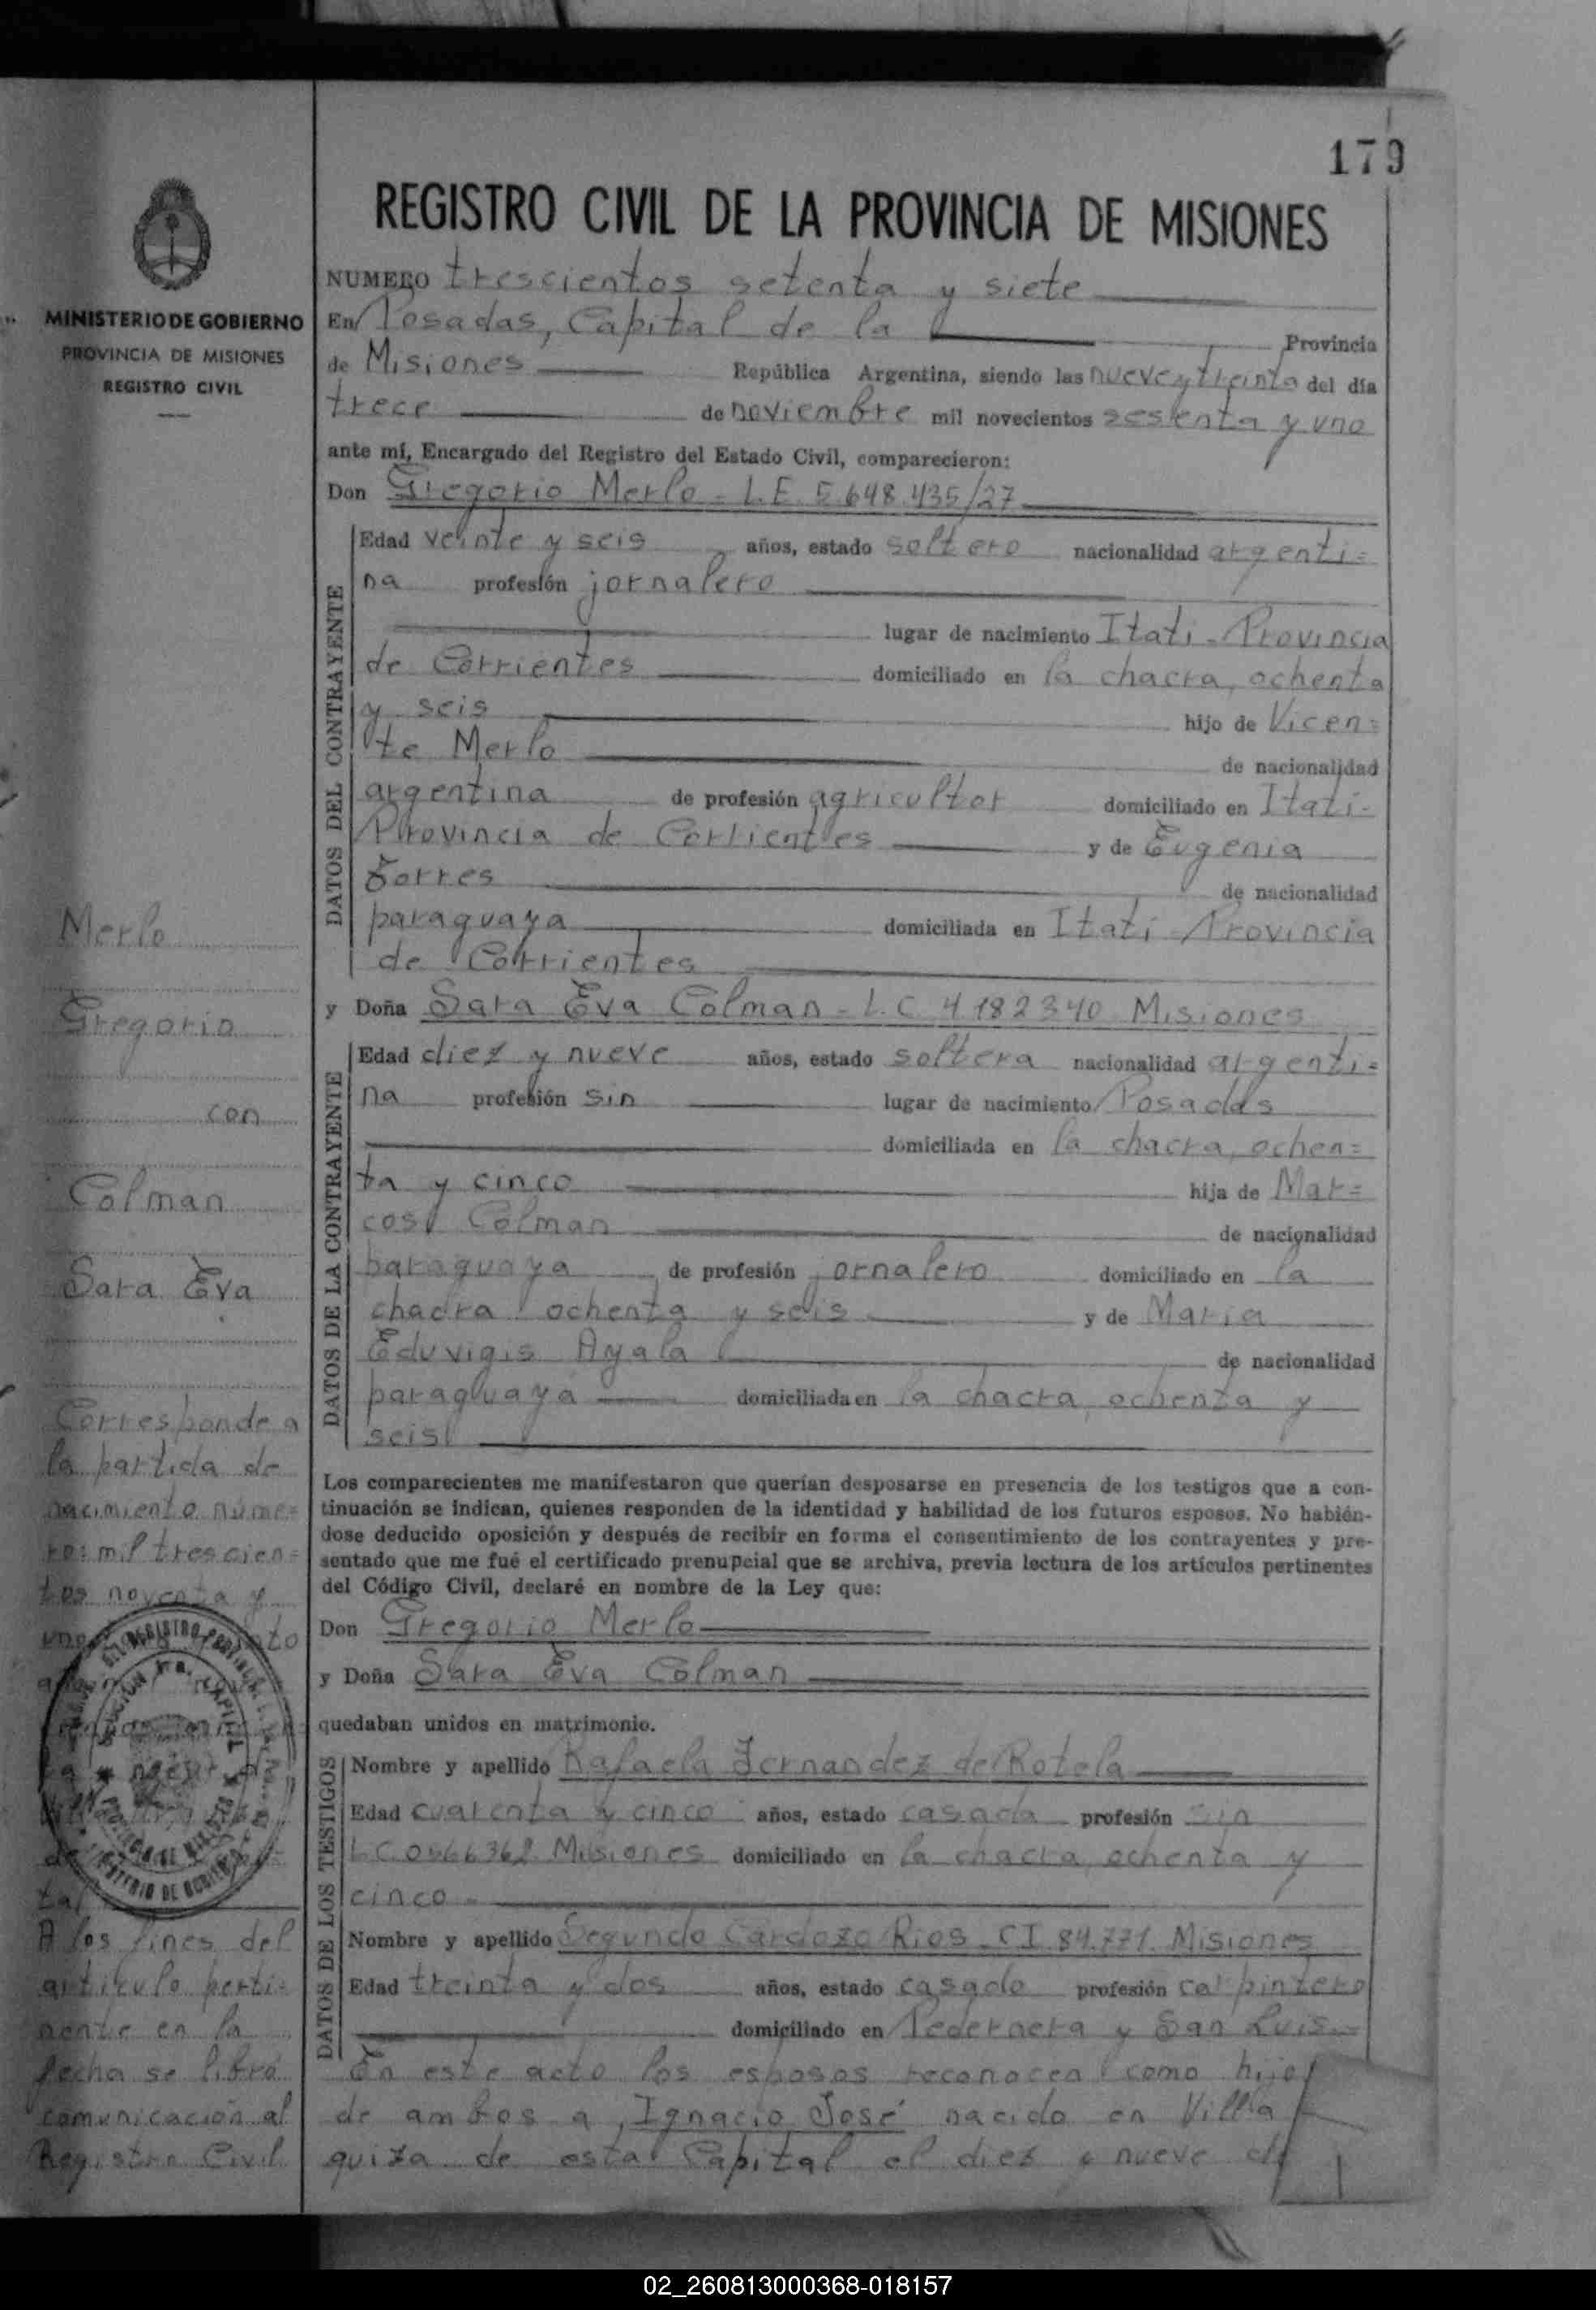 179
REGISTRO CIVIL DE LA PROVINCIA DE MISIONES
MINISTERIO DE GOBIERNO
PROVINCIA DE MISIONES
REGISTRO CIVIL
NUMERO trescientos setenta y siete
En Posadas, Capital de la Provincia
de Misiones República Argentina, siendo las nueve y treinta del día
trece de noviembre mil novecientos sesenta y uno
ante mí, Encargado del Registro del Estado Civil, comparecieron:
Don Gregorio Merlo - L.E. 5.648.435/27
DATOS DEL CONTRAYENTE
Edad veinte y seis años, estado soltero nacionalidad argenti=
na profesión jornalero
lugar de nacimiento Itatí - Provincia
de Corrientes domiciliado en la chacra ochenta
y seis hijo de Vicen=
te Merlo de nacionalidad
argentina de profesión agricultor domiciliado en Itatí -
Provincia de Corrientes y de Eugenia
Torres de nacionalidad
paraguaya domiciliada en Itatí - Provincia
de Corrientes
y Doña Sara Eva Colman - L.C 4.182340 Misiones
DATOS DE LA CONTRAYENTE
Edad diez y nueve años, estado soltera nacionalidad argenti=
na profesión sin lugar de nacimiento Posadas
domiciliada en la chacra ochen=
ta y cinco hija de Mar=
cos Colman de nacionalidad
paraguaya de profesión jornalero domiciliado en la
chacra ochenta y seis y de María
Eduvigis Ayala de nacionalidad
paraguaya domiciliada en la chacra ochenta y
seis
Los comparecientes me manifestaron que querían desposarse en presencia de los testigos que a con-
tinuación se indican, quienes responden de la identidad y habilidad de los futuros esposos. No habién-
dose deducido oposición y después de recibir en forma el consentimiento de los contrayentes y pre-
sentado que me fué el certificado prenupcial que se archiva, previa lectura de los artículos pertinentes
del Código Civil, declaré en nombre de la Ley que:
Don Gregorio Merlo
y Doña Sara Eva Colman
quedaban unidos en matrimonio.
DATOS DE LOS TESTIGOS
Nombre y apellido Rafaela Fernandez de Rotela
Edad cuarenta y cinco años, estado casada profesión sin
L.C. 0566362 Misiones domiciliado en la chacra ochenta y
cinco
Nombre y apellido Segundo Cardozo Rios - C.I. 84.771 Misiones
Edad treinta y dos años, estado casado profesión carpintero
domiciliado en Pedernera y San Luis
En este acto los esposos reconocen como hijo
de ambos a Ignacio José nacido en Villa
guiza de esta Capital el diez y nueve de
Merlo
Gregorio
con
Colman
Sara Eva
Corresponde a
la partida de
nacimiento núme=
ro: mil trescien=
tos noventa y
uno
tal
A los fines del
artículo perti=
nente en la
fecha se libró
comunicación al
Registro Civil
02_260813000368-018157